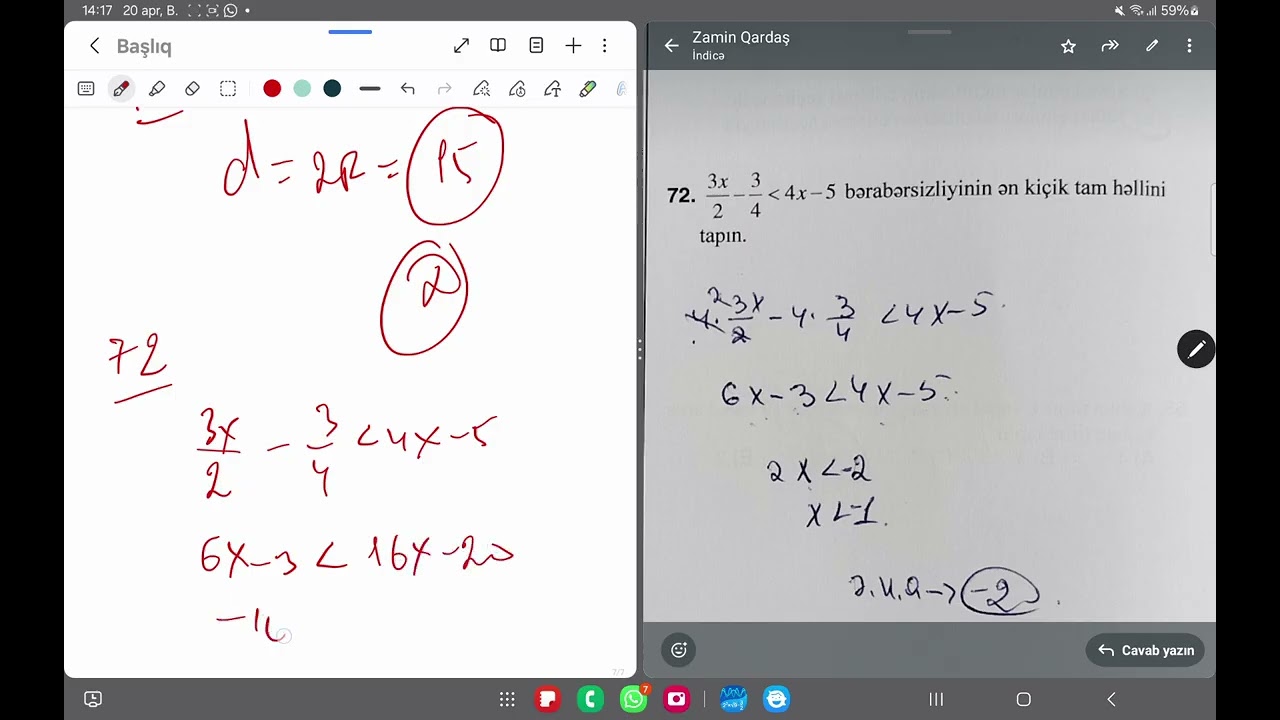 14:17 20 apr, B.
59%
Başlıq
d = 2R = 15
2
72
3x/2 - 3/4 < 4x - 5
6x - 3 < 16x - 20
7/7
Zamin Qardaş
İndicə
72. 3x/2 - 3/4 < 4x - 5 bərabərsizliyinin ən kiçik tam həllini
tapın.
4 · 3x/2 - 4 · 3/4 < 4x - 5
6x - 3 < 4x - 5
2x < -2
x < -1
-2
Cavab yazın
7